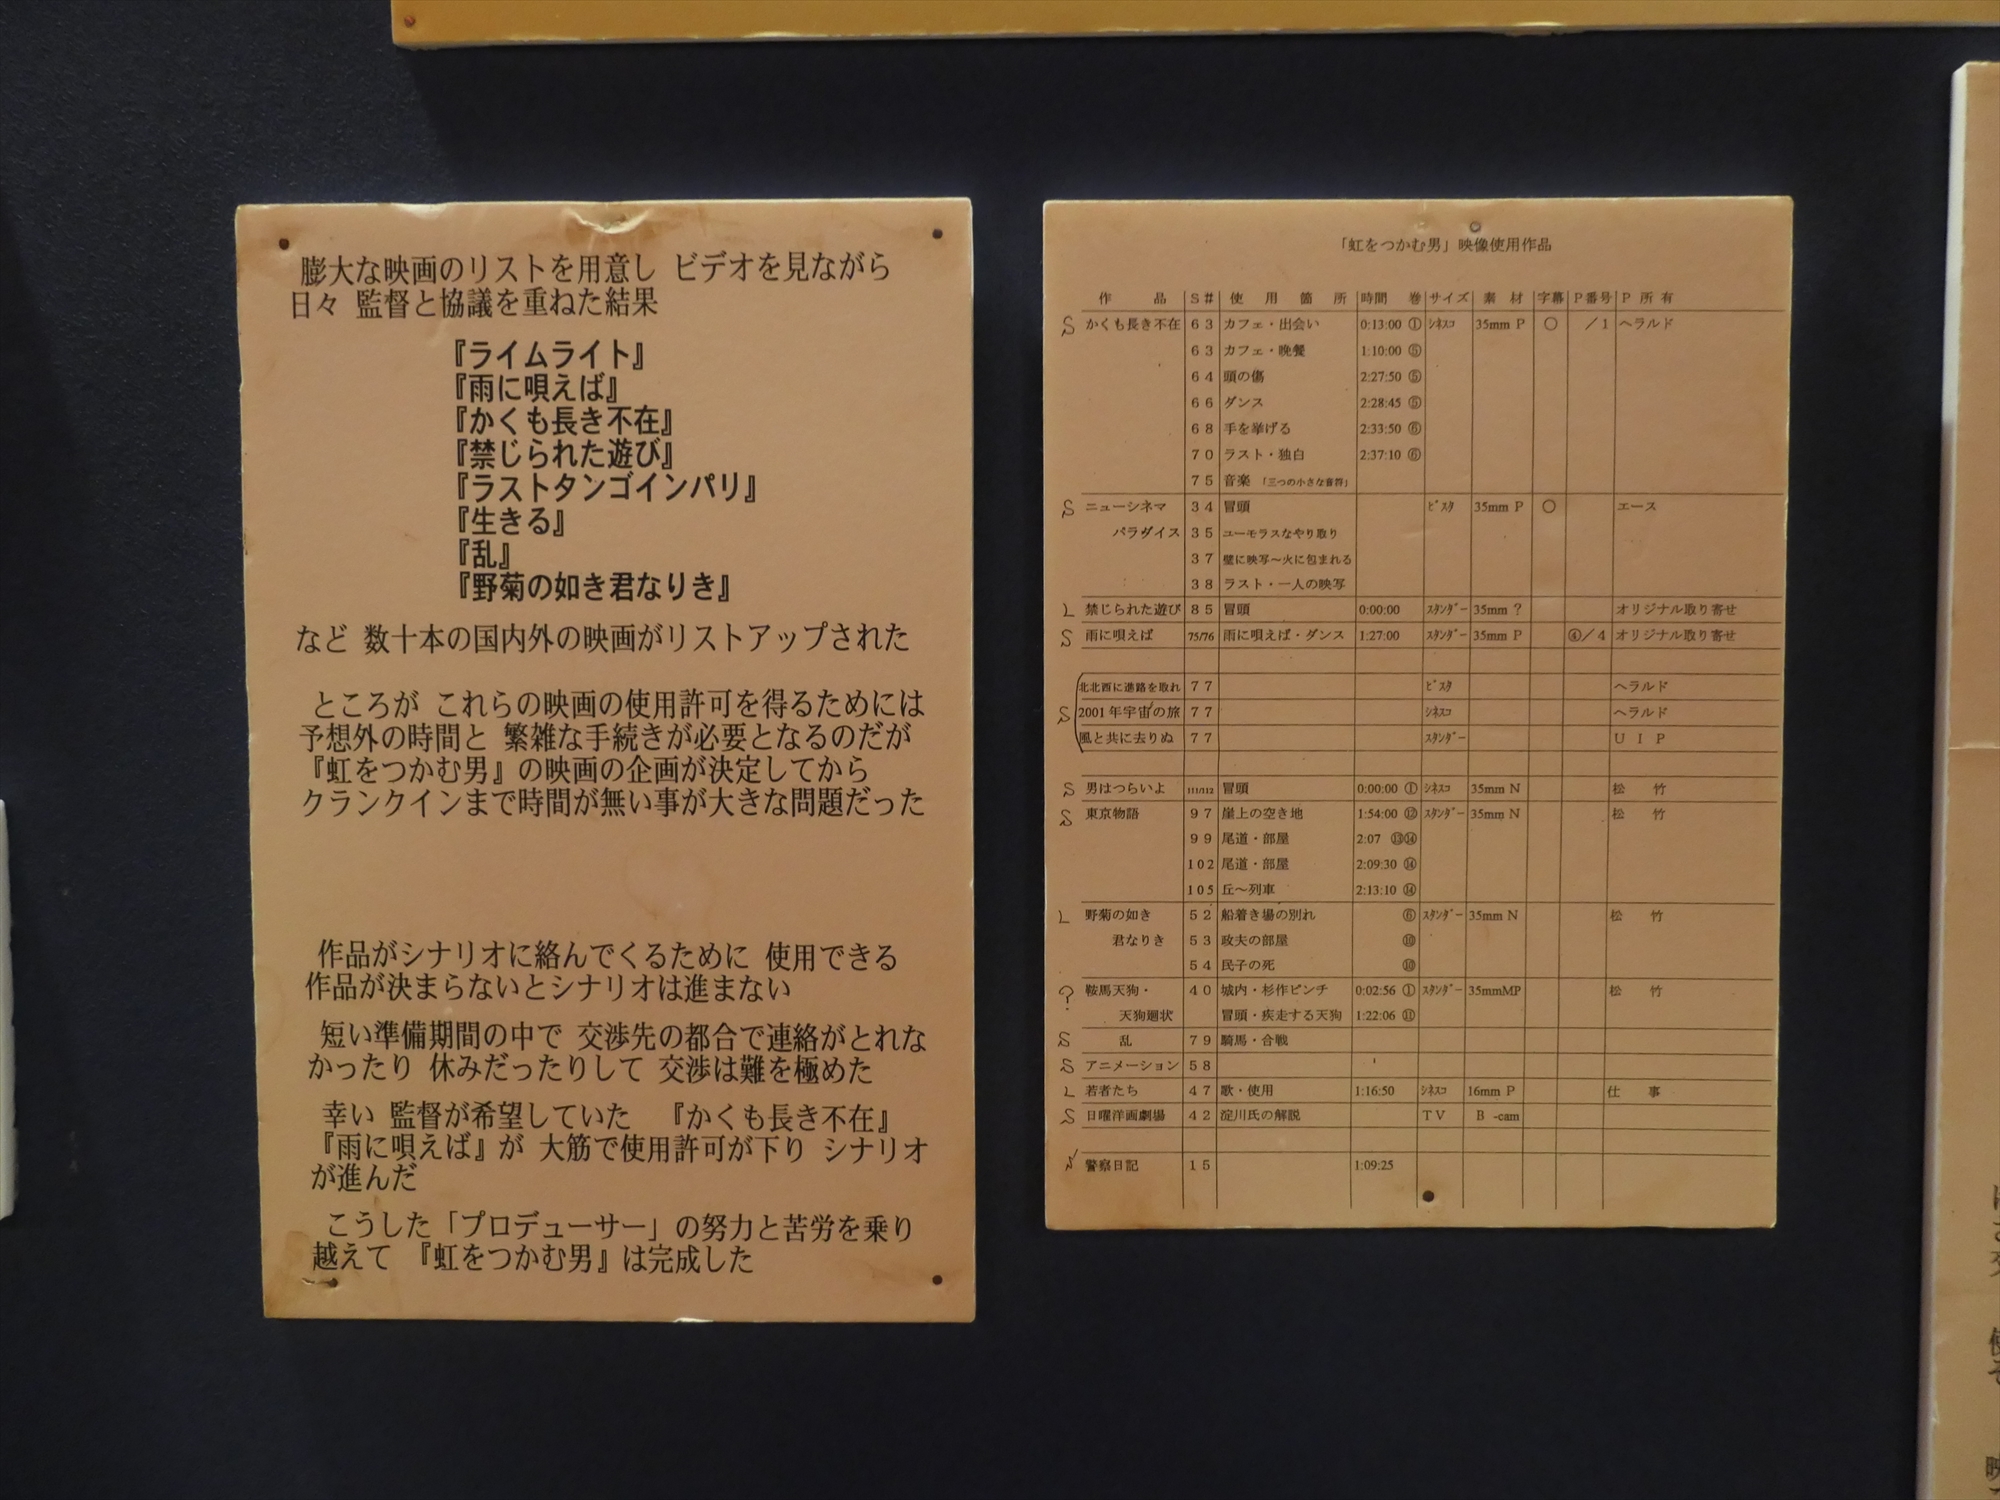 膨大な映画のリストを用意し ビデオを見ながら
日々 監督と協議を重ねた結果
『ライムライト』
『雨に唄えば』
『かくも長き不在』
『禁じられた遊び』
『ラストタンゴインパリ』
『生きる』
『乱』
『野菊の如き君なりき』
など 数十本の国内外の映画がリストアップされた
ところが これらの映画の使用許可を得るためには
予想外の時間と 繁雑な手続きが必要となるのだが
『虹をつかむ男』の映画の企画が決定してから
クランクインまで時間が無い事が大きな問題だった
作品がシナリオに絡んでくるために 使用できる
作品が決まらないとシナリオは進まない
短い準備期間の中で 交渉先の都合で連絡がとれな
かったり 休みだったりして 交渉は難を極めた
幸い 監督が希望していた 『かくも長き不在』
『雨に唄えば』が 大筋で使用許可が下り シナリオ
が進んだ
こうした「プロデューサー」の努力と苦労を乗り
越えて 『虹をつかむ男』は完成した
「虹をつかむ男」映像使用作品
作 品 S# 使 用 箇 所 時間 巻 サイズ 素 材 字幕 P番号 P 所 有
S かくも長き不在 63 カフェ・出会い 0:13:00 ① シネスコ 35mm P ○ ／1 ヘラルド
63 カフェ・晩餐 1:10:00 ⑤
64 頭の傷 2:27:50 ⑤
66 ダンス 2:28:45 ⑤
68 手を挙げる 2:33:50 ⑥
70 ラスト・独白 2:37:10 ⑥
75 音楽 「三つの小さな音符」
S ニューシネマ 34 冒頭 ビスタ 35mm P ○ エース
パラダイス 35 ユーモラスなやり取り
37 壁に映写〜火に包まれる
38 ラスト・一人の映写
L 禁じられた遊び 85 冒頭 0:00:00 スタンダー 35mm ? オリジナル取り寄せ
S 雨に唄えば 75/76 雨に唄えば・ダンス 1:27:00 スタンダー 35mm P ④／4 オリジナル取り寄せ
北北西に進路を取れ 77 ビスタ ヘラルド
S 2001年宇宙の旅 77 シネスコ ヘラルド
風と共に去りぬ 77 スタンダー UIP
S 男はつらいよ 111/112 冒頭 0:00:00 ① シネスコ 35mm N 松 竹
S 東京物語 97 崖上の空き地 1:54:00 ⑫ スタンダー 35mm N 松 竹
99 尾道・部屋 2:07 ⑬⑭
102 尾道・部屋 2:09:30 ⑭
105 丘〜列車 2:13:10 ⑭
L 野菊の如き 52 船着き場の別れ ⑥ スタンダー 35mm N 松 竹
君なりき 53 政夫の部屋 ⑩
54 民子の死 ⑩
? 鞍馬天狗・ 40 城内・杉作ピンチ 0:02:56 ① スタンダー 35mmMP 松 竹
天狗廻状 冒頭・疾走する天狗 1:22:06 ⑪
S 乱 79 騎馬・合戦
S アニメーション 58
L 若者たち 47 歌・使用 1:16:50 シネスコ 16mm P 仕 事
S 日曜洋画劇場 42 淀川氏の解説 TV B -cam
警察日記 15 1:09:25